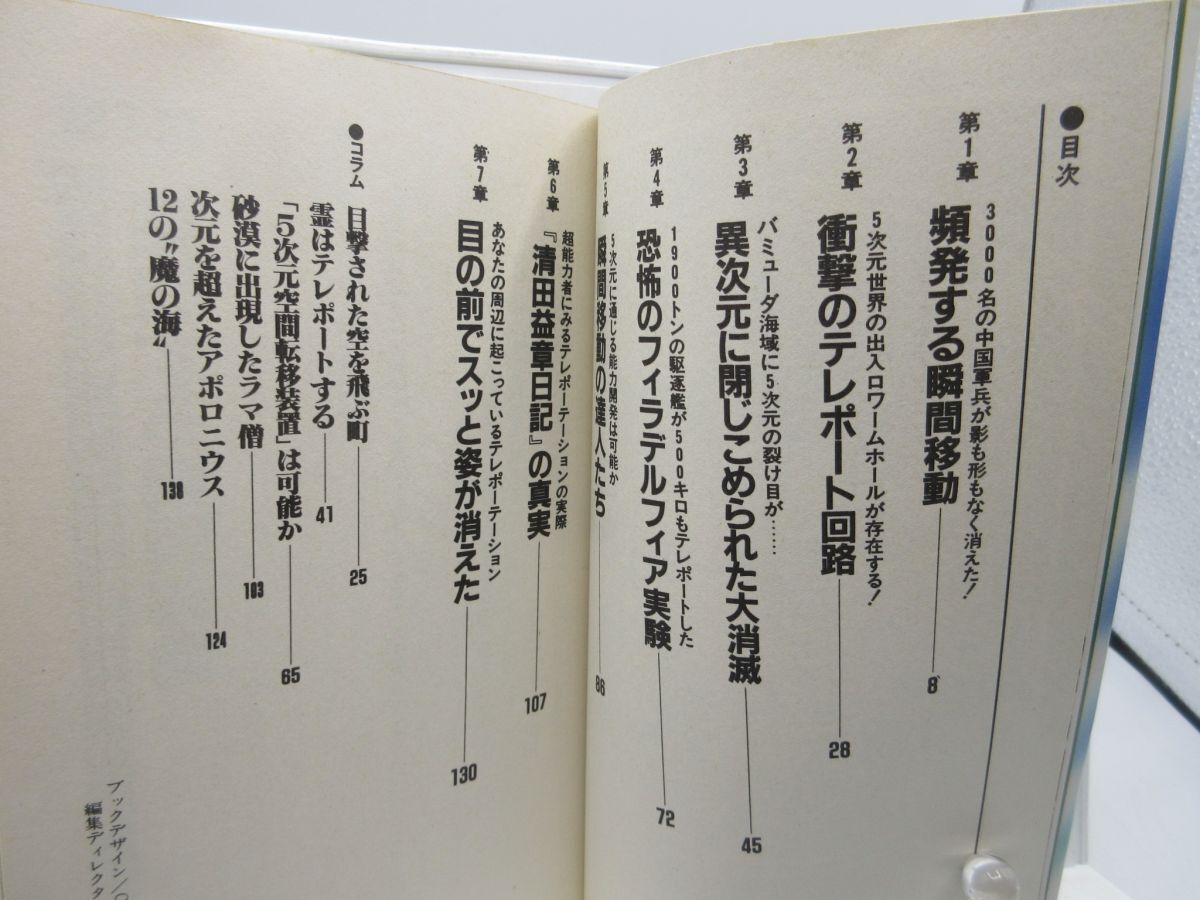 ●目次
第1章
3000名の中国軍兵が影も形もなく消えた！
頻発する瞬間移動
8
第2章
5次元世界の出入口ワームホールが存在する！
衝撃のテレポート回路
28
第3章
バミューダ海域に5次元の裂け目が……
異次元に閉じこめられた大消滅
45
第4章
1900トンの駆逐艦が500キロもテレポートした
恐怖のフィラデルフィア実験
72
第5章
5次元に通じる能力開発は可能か
瞬間移動の達人たち
86
第6章
超能力者にみるテレポーテーションの実際
『清田益章日記』の真実
107
第7章
あなたの周辺に起こっているテレポーテーション
目の前でスッと姿が消えた
130
●コラム
目撃された空を飛ぶ町
25
霊はテレポートする
41
「5次元空間転移装置」は可能か
65
砂漠に出現したラマ僧
103
次元を超えたアポロニウス
124
12の〝魔の海〟
138
ブックデザイン/
編集ディレクタ